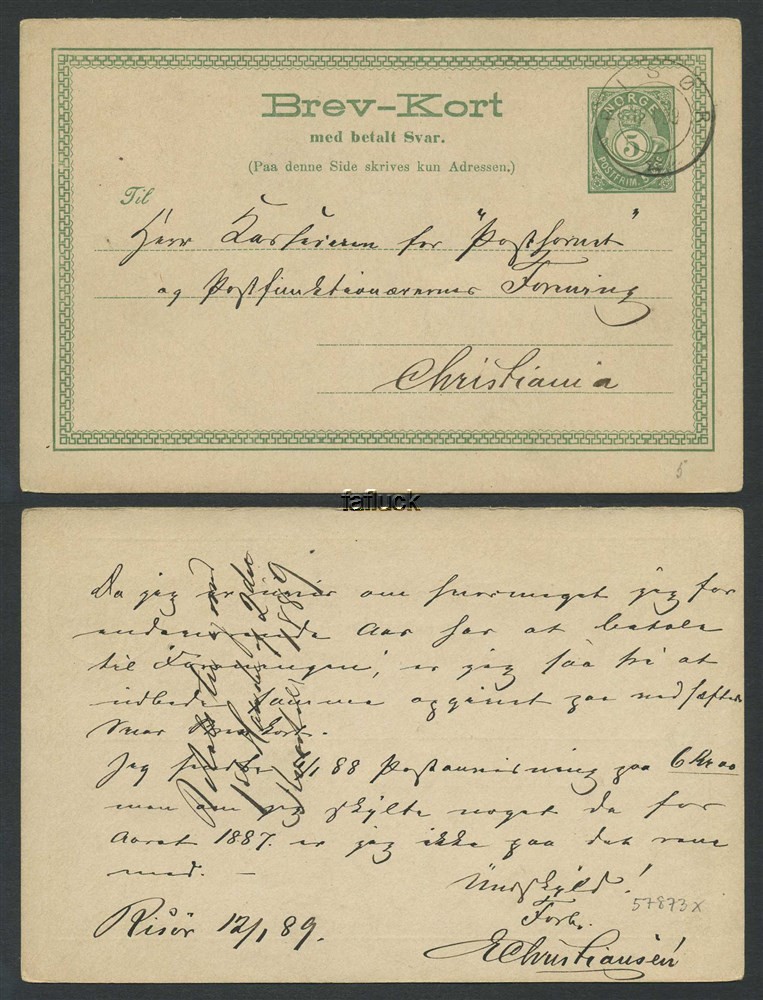 Brev-Kort
med betalt Svar.
(Paa denne Side skrives kun Adressen.)
NORGE
5
POSTFRIM.
RISØR
Til
Herr Kassereren for "Posthornet"
og Postfunktionærernes Forening
Christiania
5
fafluck
Da jeg er uvis om hvormeget jeg for
Aar har at betale
til Foreningen, er jeg saa fri at
udbede samme opgivet paa vedhæftet
Svar Brevkort.
Jeg sendte 88 Postanvisning paa 6 Kr 00
men om jeg skylte noget da for
Aaret 1887. er jeg ikke paa det rene
med. -
Undskyld!
Forb.
EChristiansen
Risör 12/1 89.
57873X
1889